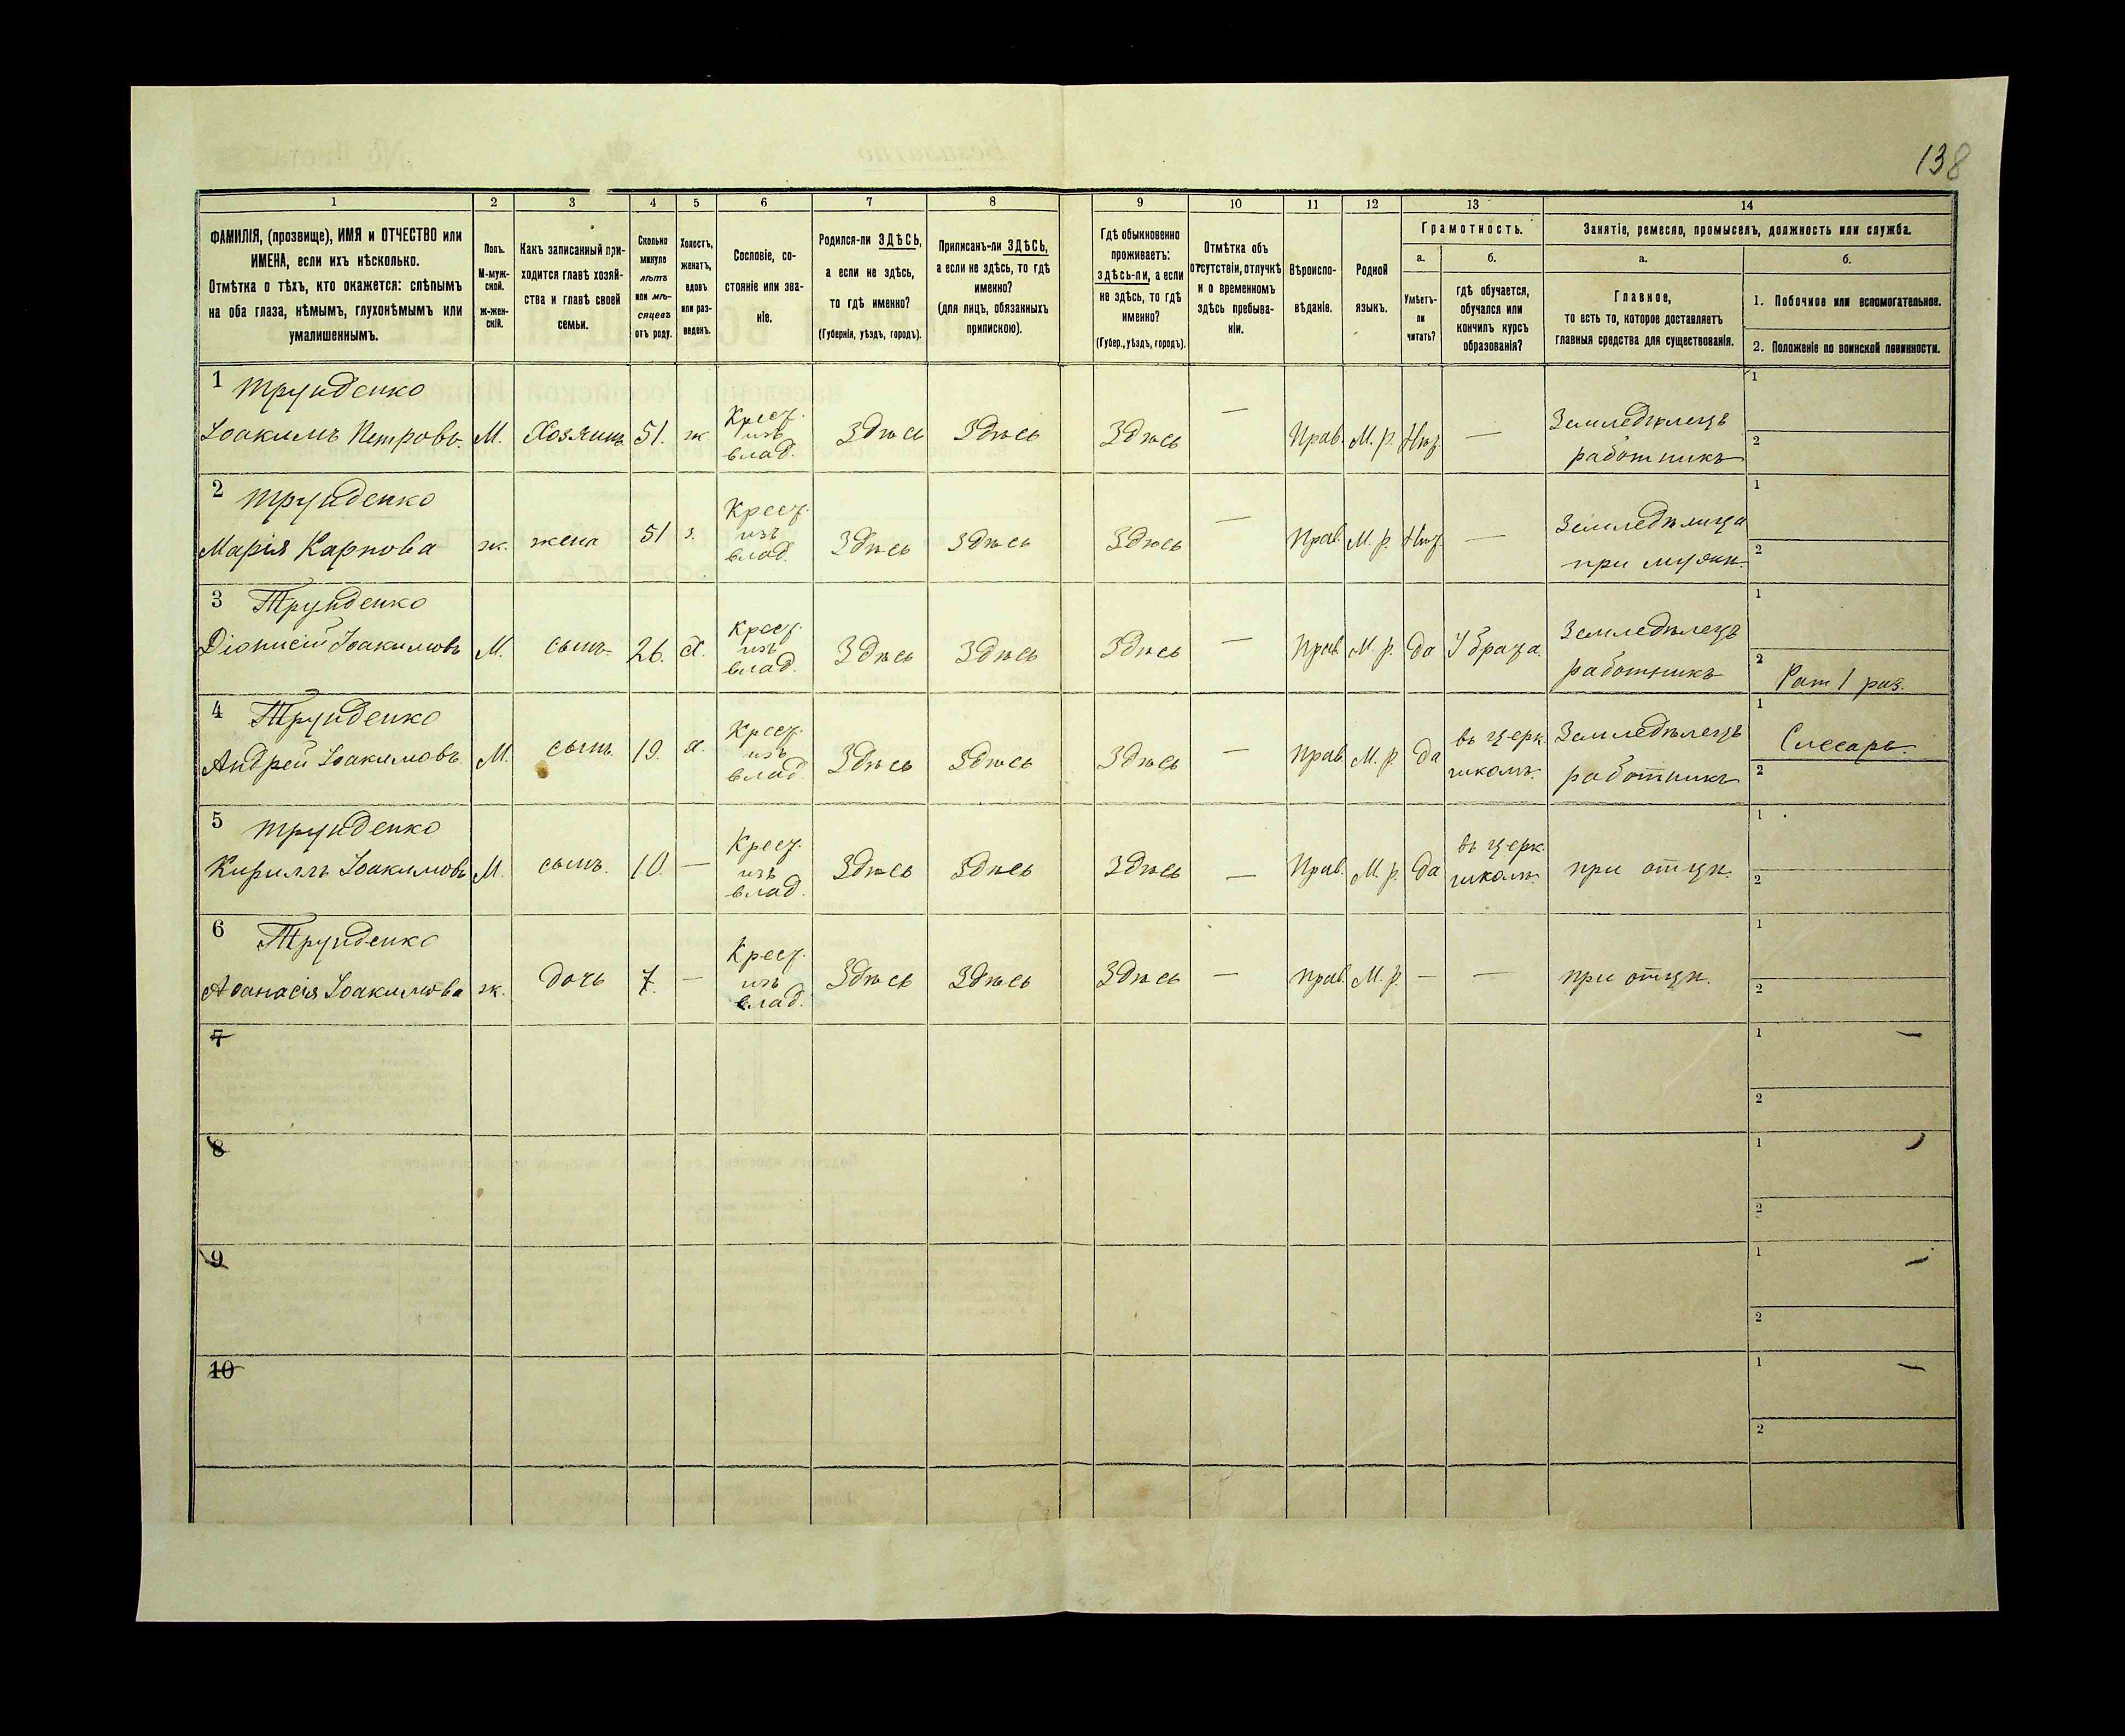 138
1 2 3 4 5 6 7 8 9 10 11 12 13 14
ФАМИЛІЯ, (прозвище), ИМЯ и ОТЧЕСТВО или
ИМЕНА, если ихъ нѣсколько.
Отмѣтка о тѣхъ, кто окажется: слѣпымъ
на оба глаза, нѣмымъ, глухонѣмымъ или
умалишеннымъ.
Полъ.
М-муж-
ской.
Ж-жен-
скій.
Какъ записанный при-
ходится главѣ хозяй-
ства и главѣ своей
семьи.
Сколько
минуло
лѣтъ
или мѣ-
сяцевъ
отъ роду.
Холостъ,
женатъ,
вдовъ
или раз-
веденъ.
Сословіе, со-
стояніе или зва-
ніе.
Родился-ли ЗДѢСЬ,
а если не здѣсь,
то гдѣ именно?
(Губернія, уѣздъ, городъ).
Приписанъ-ли ЗДѢСЬ,
а если не здѣсь, то гдѣ
именно?
(для лицъ, обязанныхъ
припискою).
Гдѣ обыкновенно
проживаетъ:
здѣсь-ли, а если
не здѣсь, то гдѣ
именно?
(Губер., уѣздъ, городъ).
Отмѣтка объ
отсутствіи, отлучкѣ
и о временномъ
здѣсь пребыва-
ніи.
Вѣроиспо-
вѣданіе.
Родной
языкъ.
Грамотность.
а.
Умѣетъ-
ли
читать?
б.
гдѣ обучается,
обучался или
кончилъ курсъ
образованія?
Занятіе, ремесло, промыселъ, должность или служба.
а.
Главное,
то есть то, которое доставляетъ
главныя средства для существованія.
б.
1. Побочное или вспомогательное.
2. Положеніе по воинской повинности.
1 Трунденко
Іоакимъ Петровъ М. Хозяинъ 51. ж
Крест.
изъ
влад.
Здѣсь Здѣсь Здѣсь — Прав. М. р. Нѣт —
Земледѣлецъ
работникъ
1
2
2 Трунденко
Марія Карпова ж. жена 51 з.
Крест.
изъ
влад.
Здѣсь Здѣсь Здѣсь — Прав. М. р. Нѣт —
Земледѣлица
при мужѣ.
1
2
3 Трунденко
Діонисій Іоакимовъ М. сынъ 26. х.
Крест.
изъ
влад.
Здѣсь Здѣсь Здѣсь — Прав. М. р. да У брата.
Земледѣлецъ
работникъ
1
2 Рат 1 раз.
4 Трунденко
Андрей Іоакимовъ М. сынъ 19. х.
Крест.
изъ
влад.
Здѣсь Здѣсь Здѣсь — Прав. М. р. да
въ церк.
школѣ.
Земледѣлецъ
работникъ
1 Слесарь.
2
5 Трунденко
Кириллъ Іоакимовъ М. сынъ. 10. —
Крест.
изъ
влад.
Здѣсь Здѣсь Здѣсь — Прав. М. р. да
въ церк.
школѣ.
при отцѣ.
1
2
6 Трунденко
Аѳанасія Іоакимова ж. дочь 7. —
Крест.
изъ
влад.
Здѣсь Здѣсь Здѣсь — прав. М. р. — — при отцѣ.
1
2
7
1 —
2
8
1
2
9
1 —
2
10
1 —
2